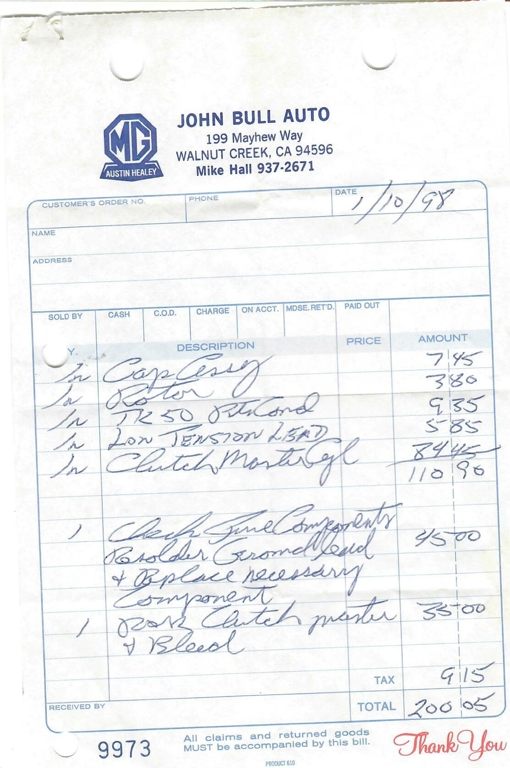 MG
AUSTIN HEALEY
JOHN BULL AUTO
199 Mayhew Way
WALNUT CREEK, CA 94596
Mike Hall 937-2671
CUSTOMER'S ORDER NO. PHONE DATE 1/10/98
NAME
ADDRESS
SOLD BY CASH C.O.D. CHARGE ON ACCT. MDSE. RET'D. PAID OUT
Y. DESCRIPTION PRICE AMOUNT
1 Cap Assy 7 45
1 Rotor 3 80
1 TK 50 Pts Cond 9 35
1 LOW TENSION LEAD 5 85
1 Clutch Master Cyl 84 45
110 90
1 Check Components 45 00
Resolder Ground lead
& Replace necessary
Component
1 Clutch master 35 00
& Bleed
TAX 9 15
RECEIVED BY TOTAL 200 05
9973
All claims and returned goods
MUST be accompanied by this bill.
Thank You
PRODUCT 610